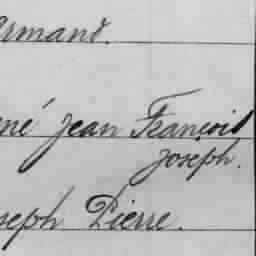 Armand.
né Jean François
Joseph.
seph Pierre.